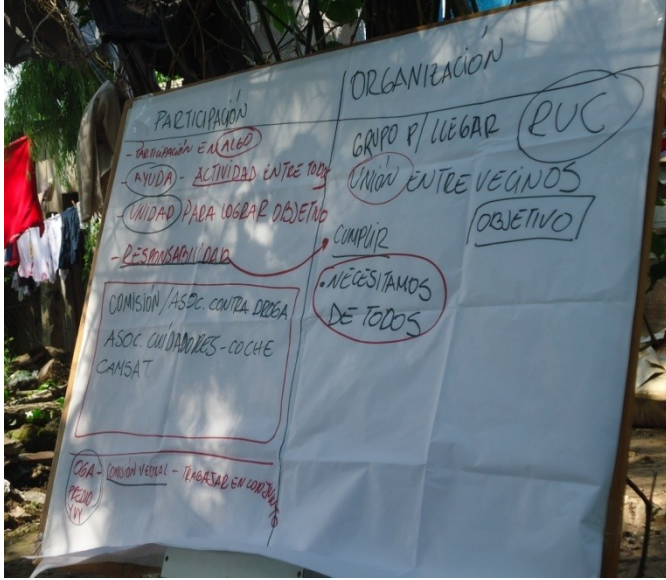 PARTICIPACIÓN
- PARTICIPACIÓN EN ALGO
- AYUDA - ACTIVIDAD ENTRE TODOS
- UNIDAD PARA LOGRAR OBJETIVO
- RESPONSABILIDAD
COMISIÓN / ASOC. CONTRA DROGA
ASOC. CUIDADORES - COCHE
CAMSAT
OGA - COMISIÓN VECINAL - TRABAJAR EN CONJUNTO
ORGANIZACIÓN
GRUPO P/ LLEGAR
UNIÓN ENTRE VECINOS
OBJETIVO
CUMPLIR
• NECESITAMOS
DE TODOS